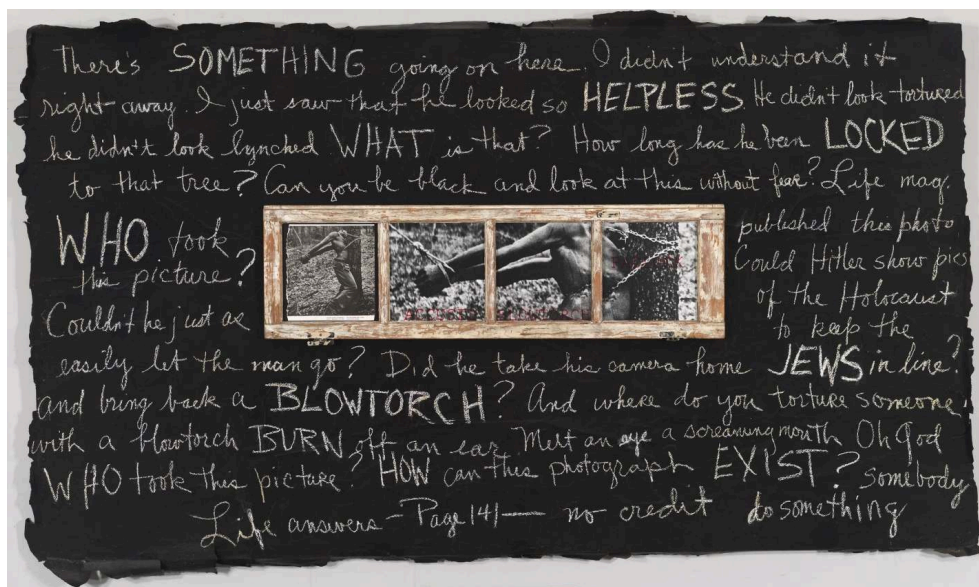 There's SOMETHING going on here. I didn't understand it
right away. I just saw that he looked so HELPLESS. He didn't look tortured
he didn't look lynched WHAT is that? How long has he been LOCKED
to that tree? Can you be black and look at this without fear? Life mag.
WHO took
this picture?
Couldn't he just as
published this photo
Could Hitler show pics
of the Holocaust
to keep the
easily let the man go? Did he take his camera home JEWS in line?
and bring back a BLOWTORCH? And where do you torture someone
with a blowtorch BURN off an ear Melt an eye a screaming mouth Oh God
WHO took this picture? HOW can this photograph EXIST? Somebody
Life answers - Page 141 — no credit do something